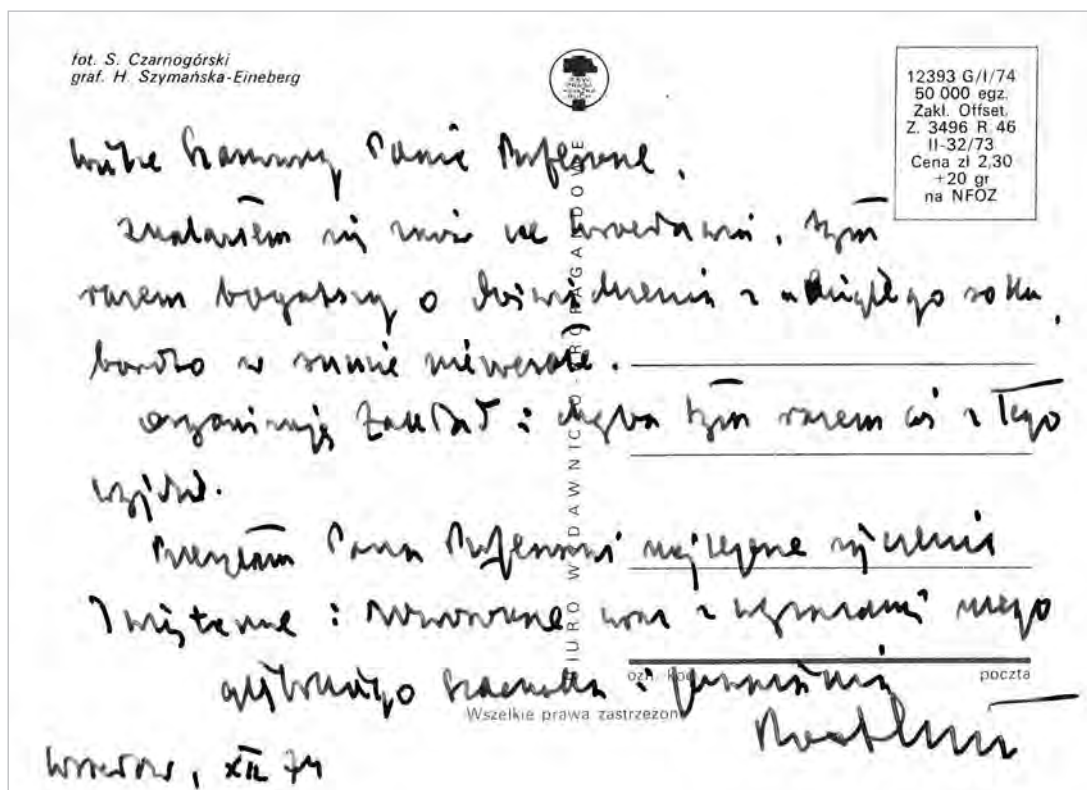 fot. S. Czarnogórski
graf. H. Szymańska-Eineberg
12393 G/I/74
50 000 egz.
Zakł. Offset.
Z. 3496 R. 46
II-32/73
Cena zł 2,30
+20 gr
na NFOZ
BIURO WYDAWNICZO-PROPAGANDOWE
Szanowny Panie Profesorze,
Znalazłem się znów we Wrocławiu, tym
razem bogatszy o doświadczenia z ubiegłego roku,
bardzo w sumie niewesołe.
Organizuję Zakład i chyba tym razem coś z tego
wyjdzie.
Przesyłam Panu Profesorowi najlepsze życzenia
Świąteczne i Noworoczne wraz z wyrazami mego
głębokiego szacunku i
ozn. kod. poczta
Wszelkie prawa zastrzeżone
Wrocław, XII 74